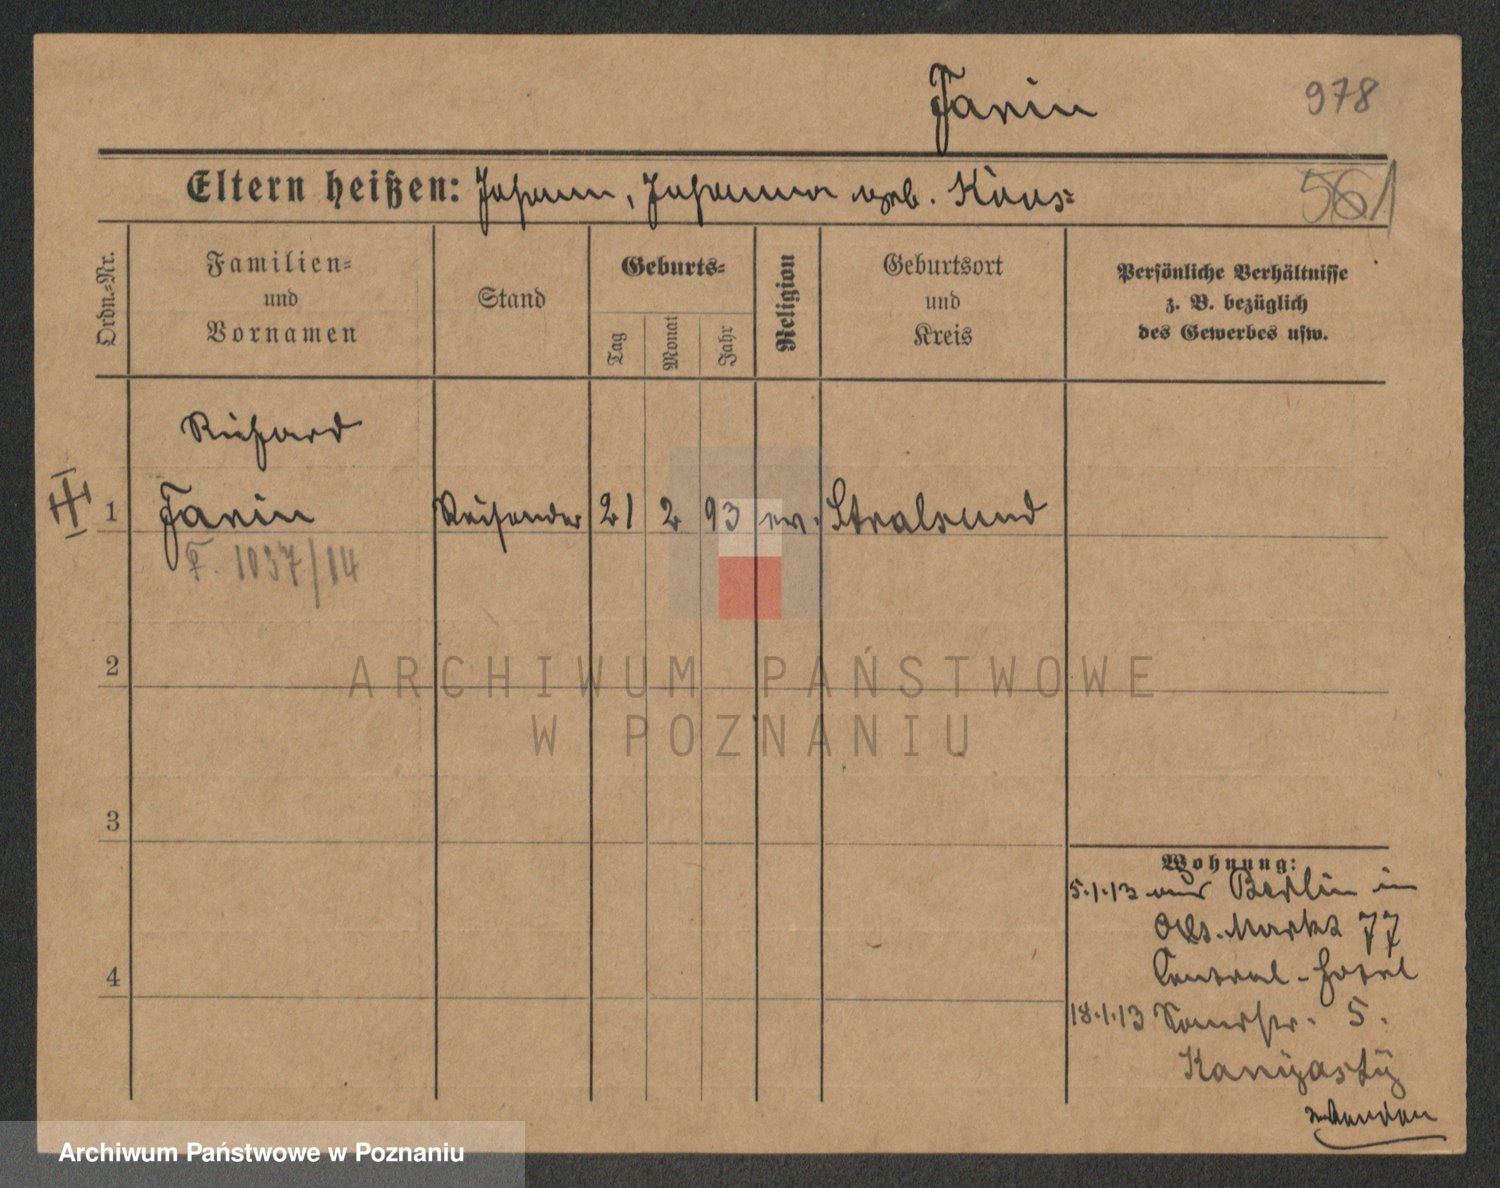 Janin
978
Eltern heißen: Johann, Johanna geb. Koos
561
Ordn.=Nr.
Familien=
und
Vornamen
Stand
Geburts=
Tag
Monat
Jahr
Religion
Geburtsort
und
Kreis
Persönliche Verhältnisse
z. B. bezüglich
des Gewerbes usw.
Richard
1 Janin Reisender 21 2 93 ev. Stralsund
F. 1037/14
2
3
4
Wohnung:
5.1.13 aus Berlin in
Markt 77
Central-Hotel
18.1.13 5.
wenden
ARCHIWUM PAŃSTWOWE
W POZNANIU
Archiwum Państwowe w Poznaniu